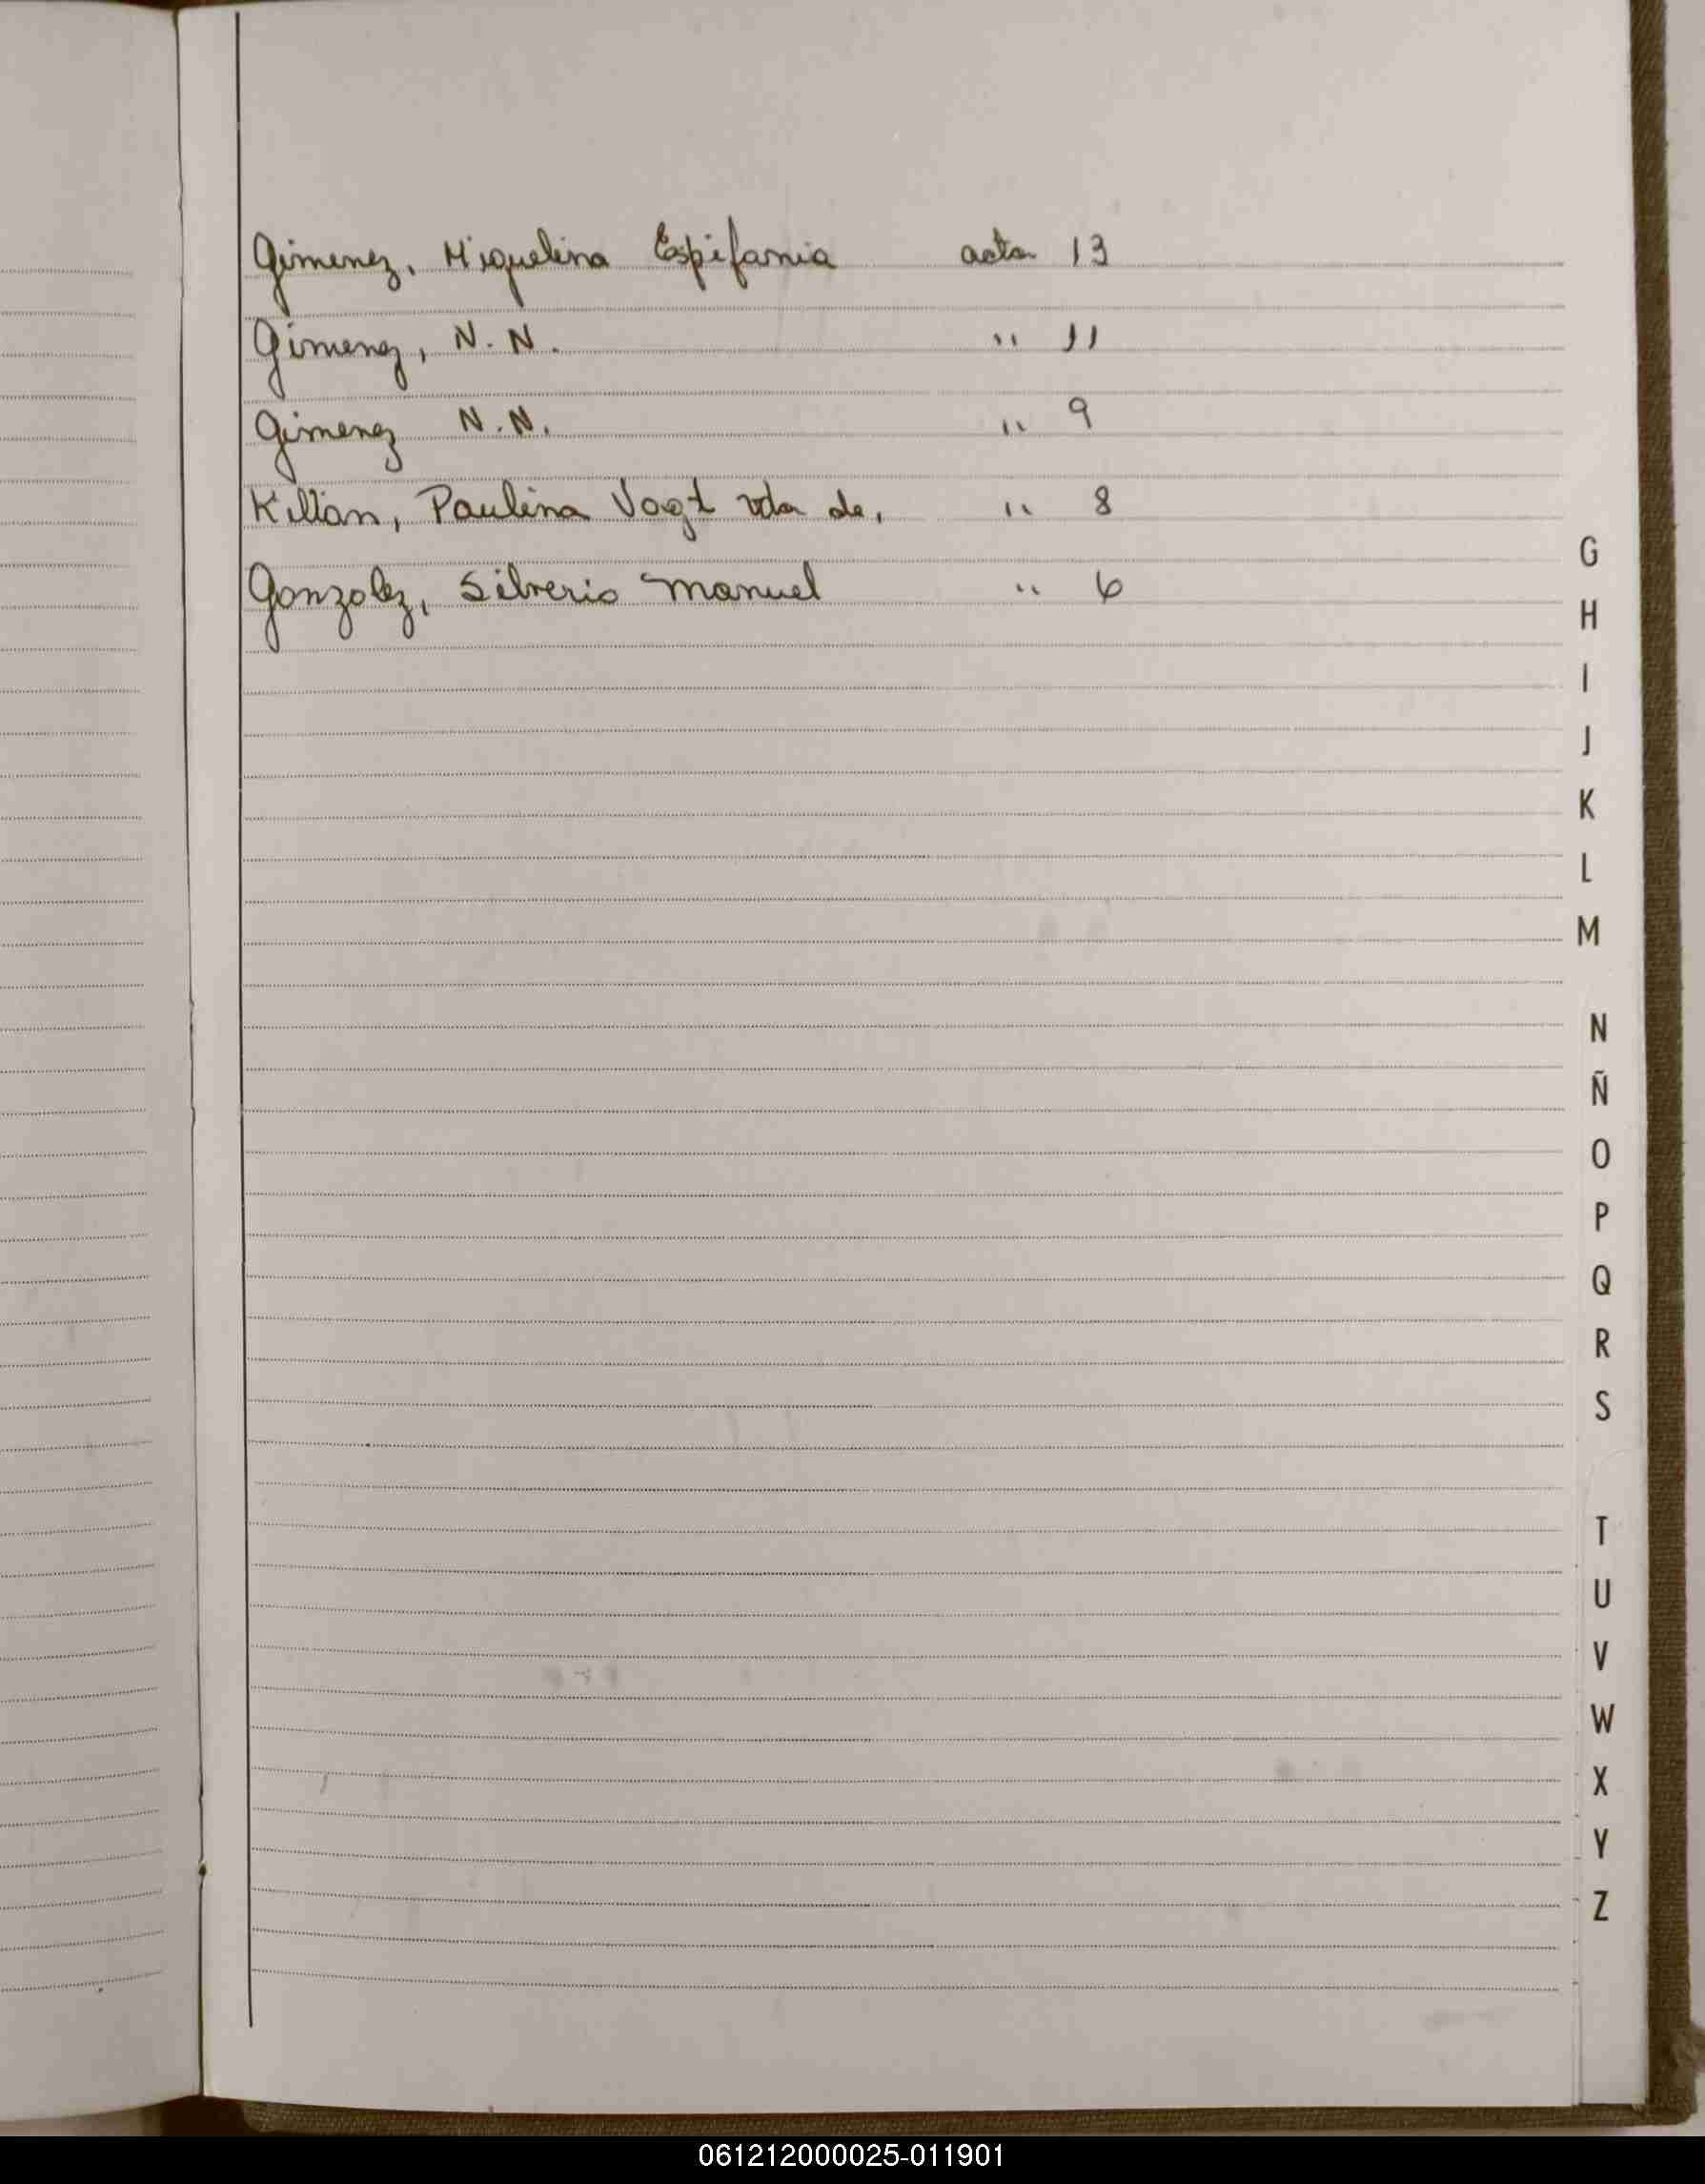 Gimenez, Miguelina Espifania acta 13
Gimenez, N.N. " 11
Gimenez N.N. " 9
Killan, Paulina Vogt vda de, " 8
Gonzalez, Silverio Manuel " 6
G
H
I
J
K
L
M
N
Ñ
O
P
Q
R
S
T
U
V
W
X
Y
Z
061212000025-011901